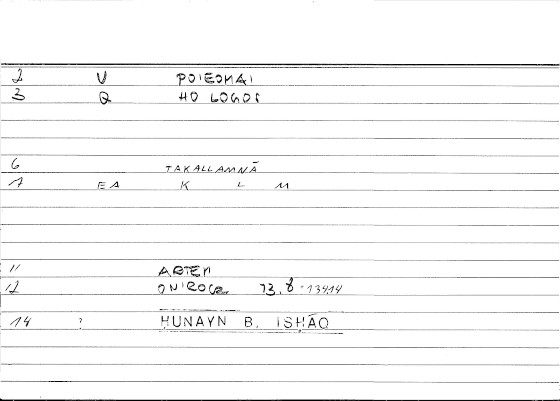 2 V POIEOMAI
3 Q HO LOGOS
6 TAKALLAMNĀ
7 EA K L M
11 ARTEM
12 ONIROCR 73.8-13414
14 ? HUNAYN B. ISHĀQ